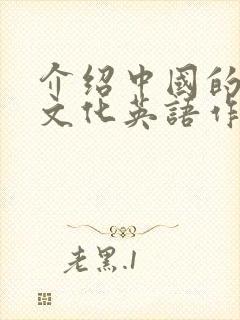 介绍中國的
文化英語作
老黑.1